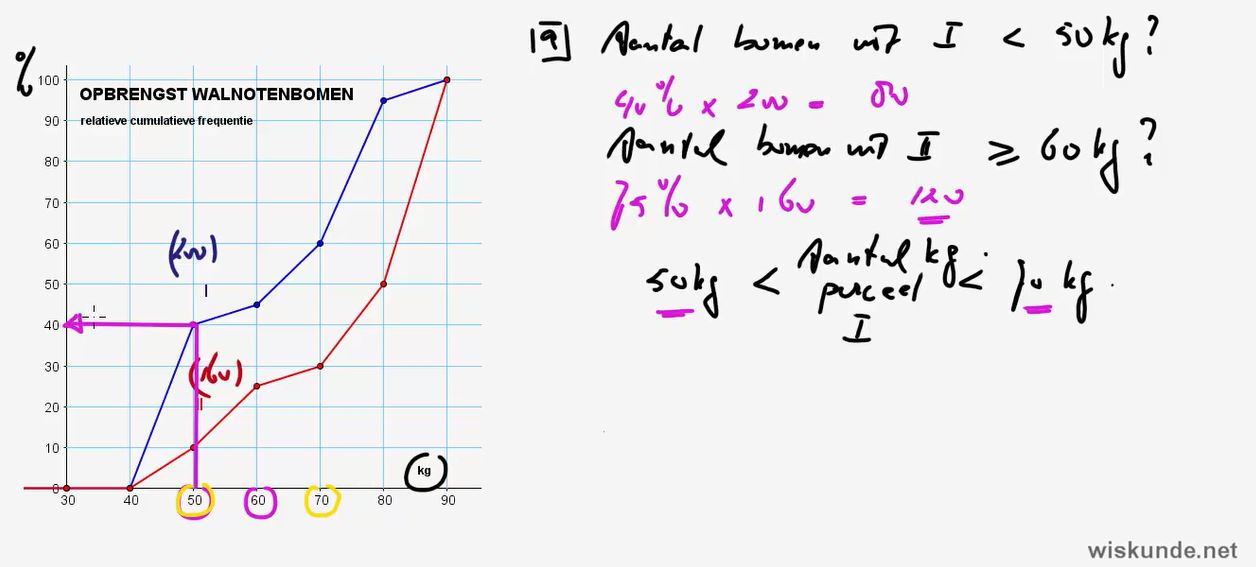 %
OPBRENGST WALNOTENBOMEN
relatieve cumulatieve frequentie
100
90
80
70
60
50
40
30
20
10
0
30 40 50 60 70 80 90
kg
(200)
I
(160)
II
19 Aantal bomen mit I < 50 kg?
40% x 200 = 80
Aantal bomen mit II ≥ 60 kg?
75% x 160 = 120
50kg < Aantal kg perceel I < 70 kg.
wiskunde.net